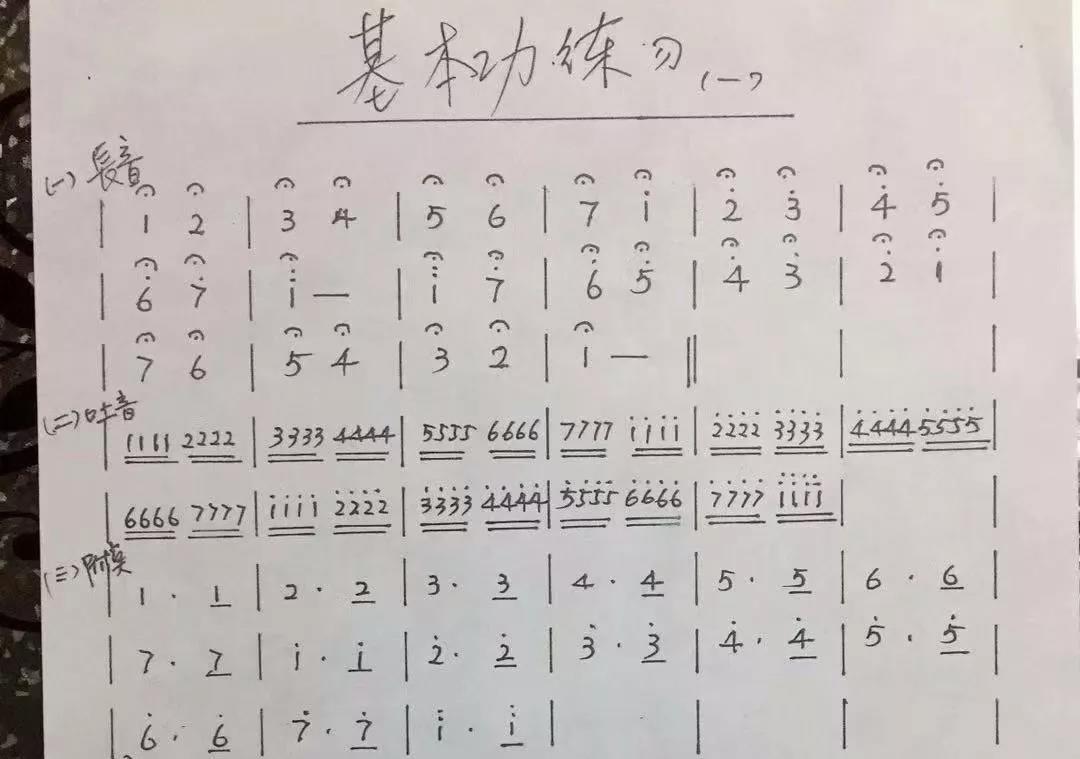 基本功练习(一)
(一)長音
| 1 2 | 3 4 | 5 6 | 7 i | 2̇ 3̇ | 4̇ 5̇ |
| 6̇ 7̇ | i̇ — | i̇ 7̇ | 6̇ 5̇ | 4̇ 3̇ | 2̇ i |
| 7 6 | 5 4 | 3 2 | 1 — ‖ | |
(二)吐音
| 1111 2222 | 3333 4444 | 5555 6666 | 7777 iiii | 2̇2̇2̇2̇ 3̇3̇3̇3̇ | 4̇4̇4̇4̇ 5̇5̇5̇5̇ |
| 6666 7777 | iiii 2̇2̇2̇2̇ | 3̇3̇3̇3̇ 4̇4̇4̇4̇ | 5̇5̇5̇5̇ 6̇6̇6̇6̇ | 7̇7̇7̇7̇ i̇i̇i̇i̇ | |
(三)附点
| 1 · 1 | 2 · 2 | 3 · 3 | 4 · 4 | 5 · 5 | 6 · 6 |
| 7 · 7 | i · i | 2̇ · 2̇ | 3̇ · 3̇ | 4̇ · 4̇ | 5̇ · 5̇ |
| 6̇ · 6̇ | 7̇ · 7̇ | i̇ · i̇ | | | |